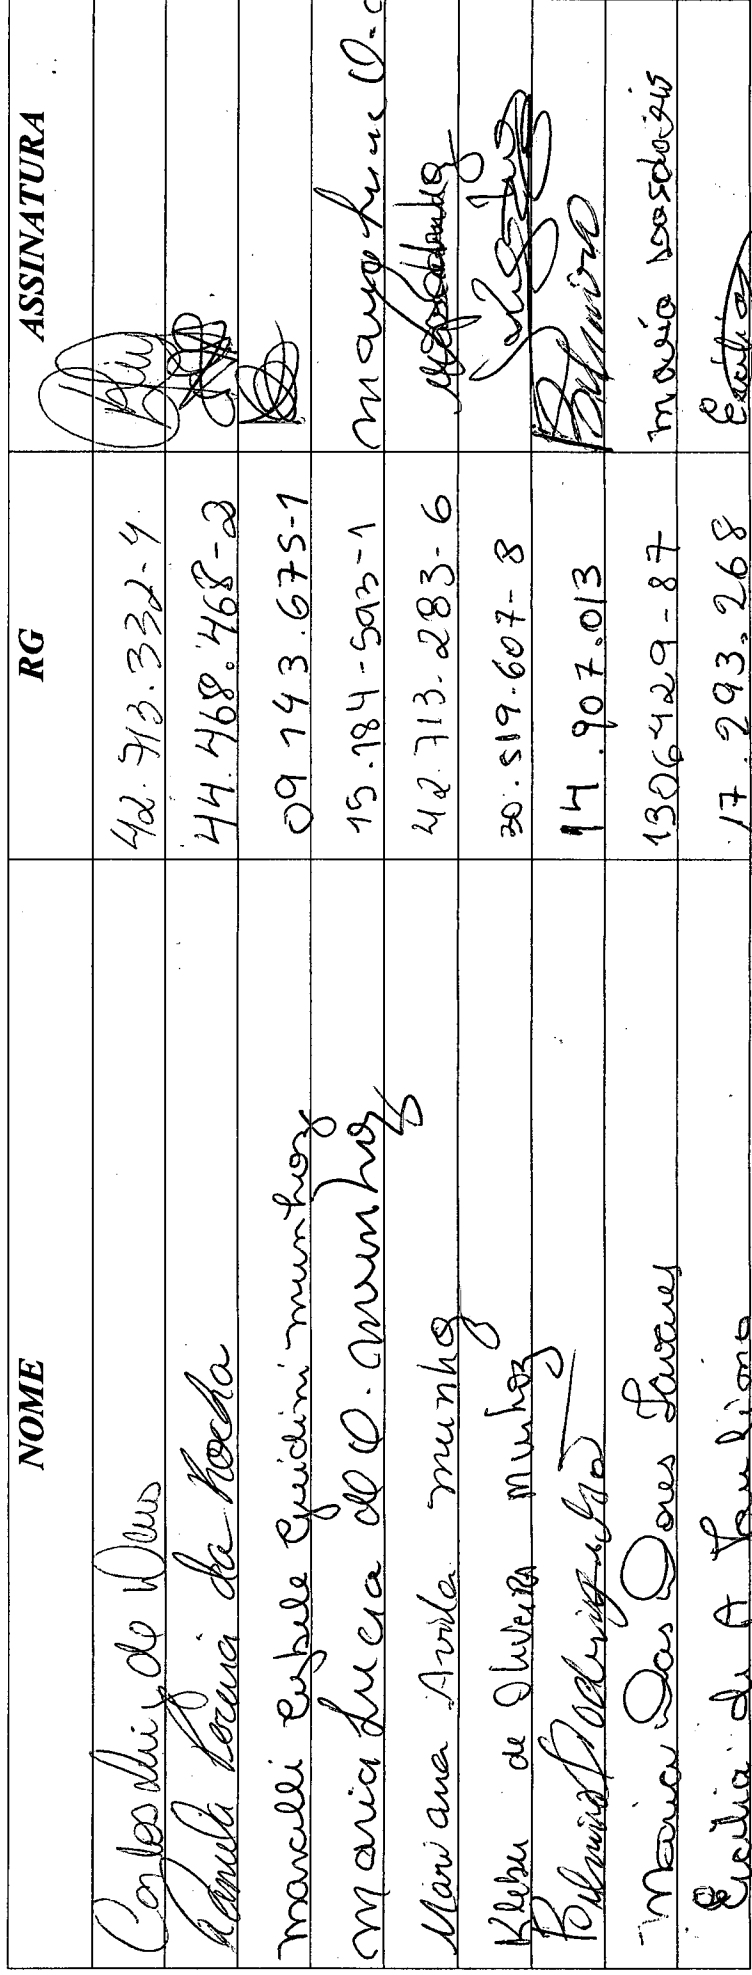 NOME RG ASSINATURA
Carlos Luiz de Deus 42.713.332-4
Pamela Pereira da Rocha 44.468.468-2
Marcilli Cybele Guidini munhoz 09 143.675-1
Maria Lucia de O. munhoz 15.184-593-1 Maria Lucia O.
Mariana Avila munhoz 42.713.283-6
Kleber de Oliveira Munhoz 30.519.607-8
Palmira Rodrigues 14.907.013 Palmira
Maria Das Dores Tavares 1306429-87 maria dasdores
Ercilia de A Pauliono 17.293.268 Ercilia